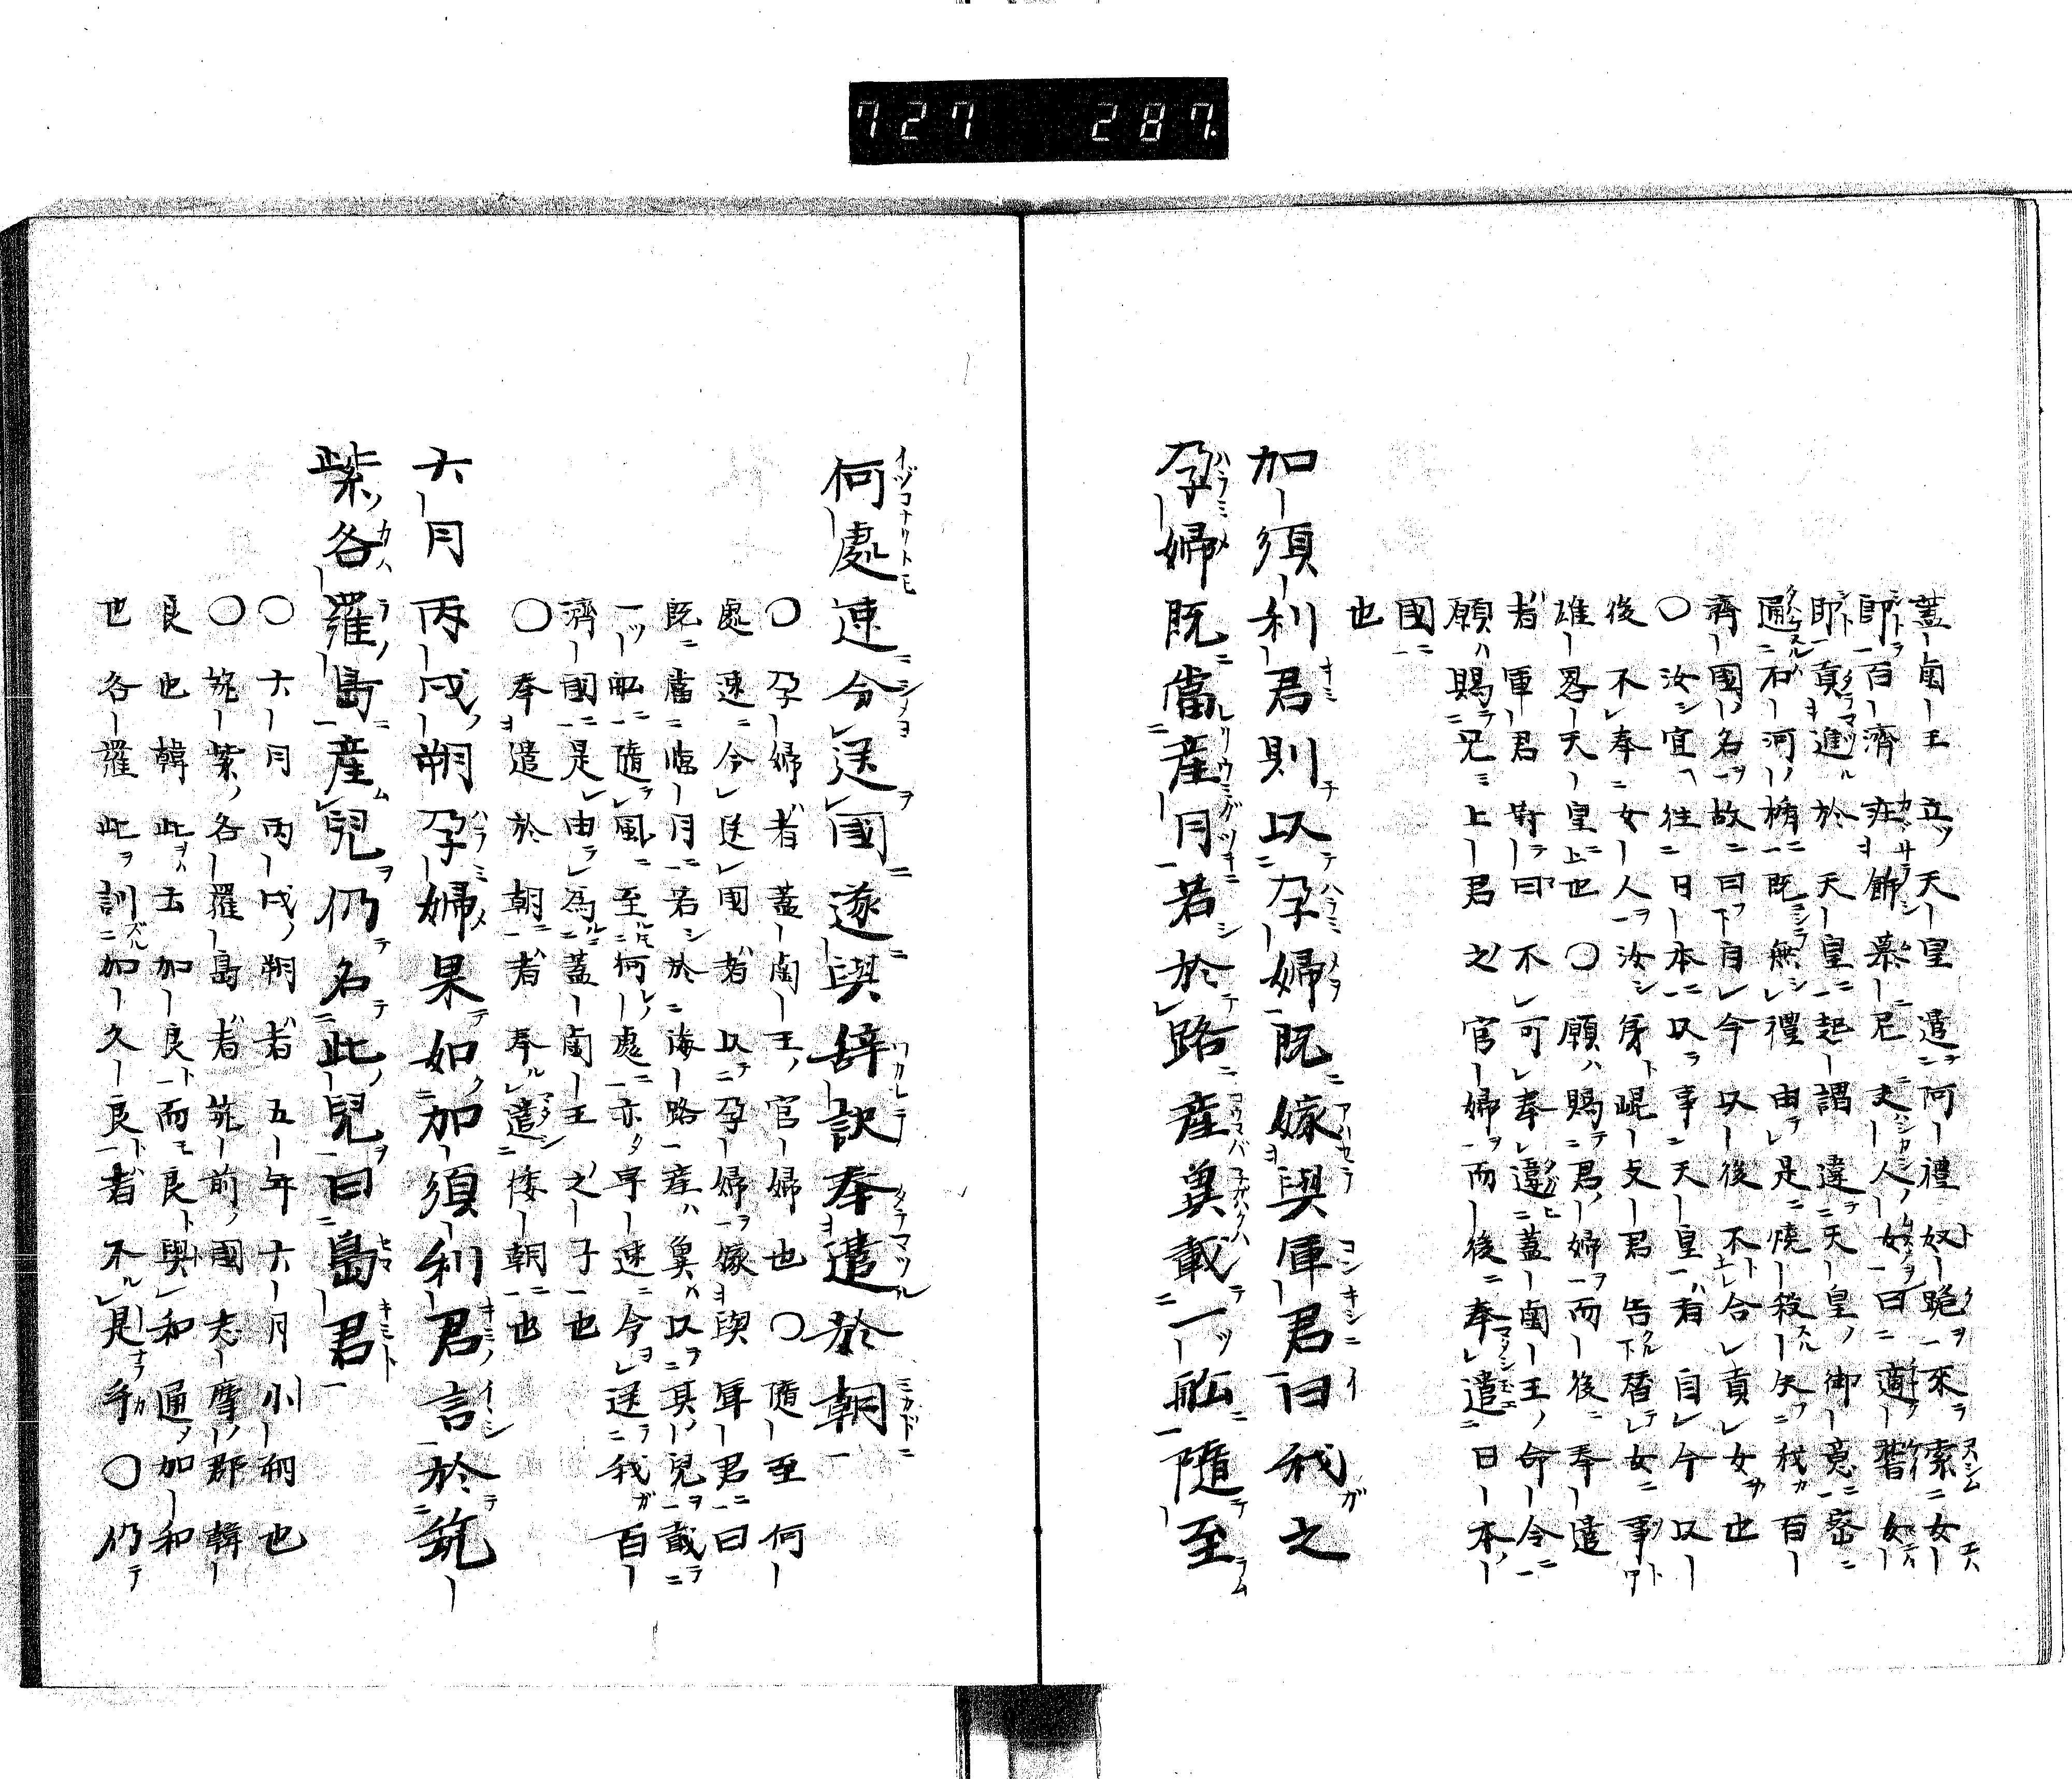 727 287.
蓋鹵王立ツ天皇遣阿禮奴跪來索女
師百濟荘飾慕尼夫人女曰適稽女
郎貢進於天皇起謂違天皇ノ御意密
通石河ノ楯既無禮由是燒殺矢我百
濟國ノ名故曰自今以後不合貢女也
〇汝宜往日本以事天皇者自今以
後不奉女人汝身崐支君告下替女事
雄畧天皇上也〇願ハ賜君ノ婦而後奉遣
者軍君對曰不可奉違蓋鹵王ノ命令
願ハ賜兄上君之官婦而後奉遣日本ノ
國
也
加須利君則以孕婦既嫁與軍君曰我之
孕婦既當産月若於路産兾載一舩隨至
何處速令送國遂與辞訣奉遣於朝
〇孕婦者蓋鹵王ノ官婦也〇隨至何
處速令送國者以孕婦嫁與軍君曰
既當臨月若於海路産ハ兾ハ以其ノ兒載
一舩隨風至何處亦早速令送我百
濟國是由為蓋鹵王之子也
〇奉遣於朝者奉遣倭朝也
六月丙戌朔孕婦果如加須利君言於筑
紫各羅島産兒仍名此兒曰島君
〇六月丙戌ノ朔者五年六月小朔也
〇筑紫ノ各羅島者筑前ノ國志摩ノ郡韓
良也韓此云加良而良與和通ノ加和
也各羅此訓加久良者不是乎〇仍テ